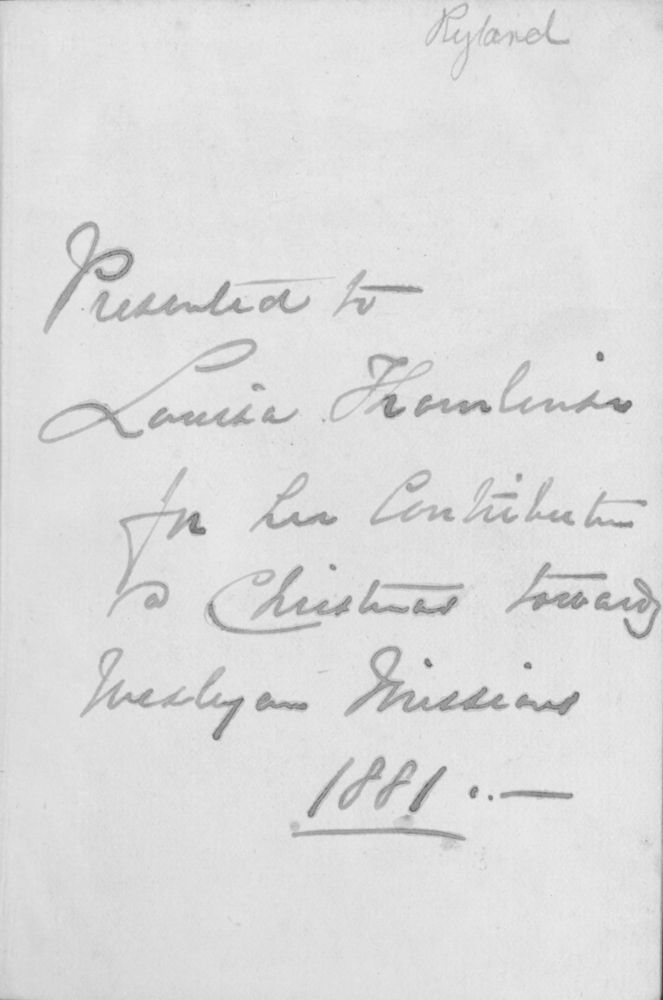 Ryland
Presented to
Louisa Thomlinson
for her Contribution
Christmas towards
Wesleyan Missions
1881 . . —